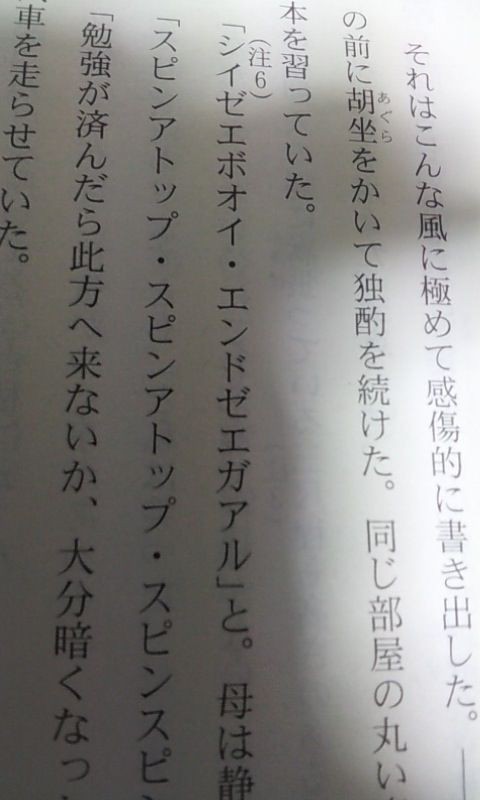 それはこんな風に極めて感傷的に書き出した。―
の前に胡坐をかいて独酌を続けた。同じ部屋の丸い
あぐら
本を習っていた。
(注6)
「シイゼエボオイ・エンドゼエガアル」と。母は静
「スピンアトップ・スピンアトップ・スピンスピン
「勉強が済んだら此方へ来ないか、大分暗くなっ
車を走らせていた。